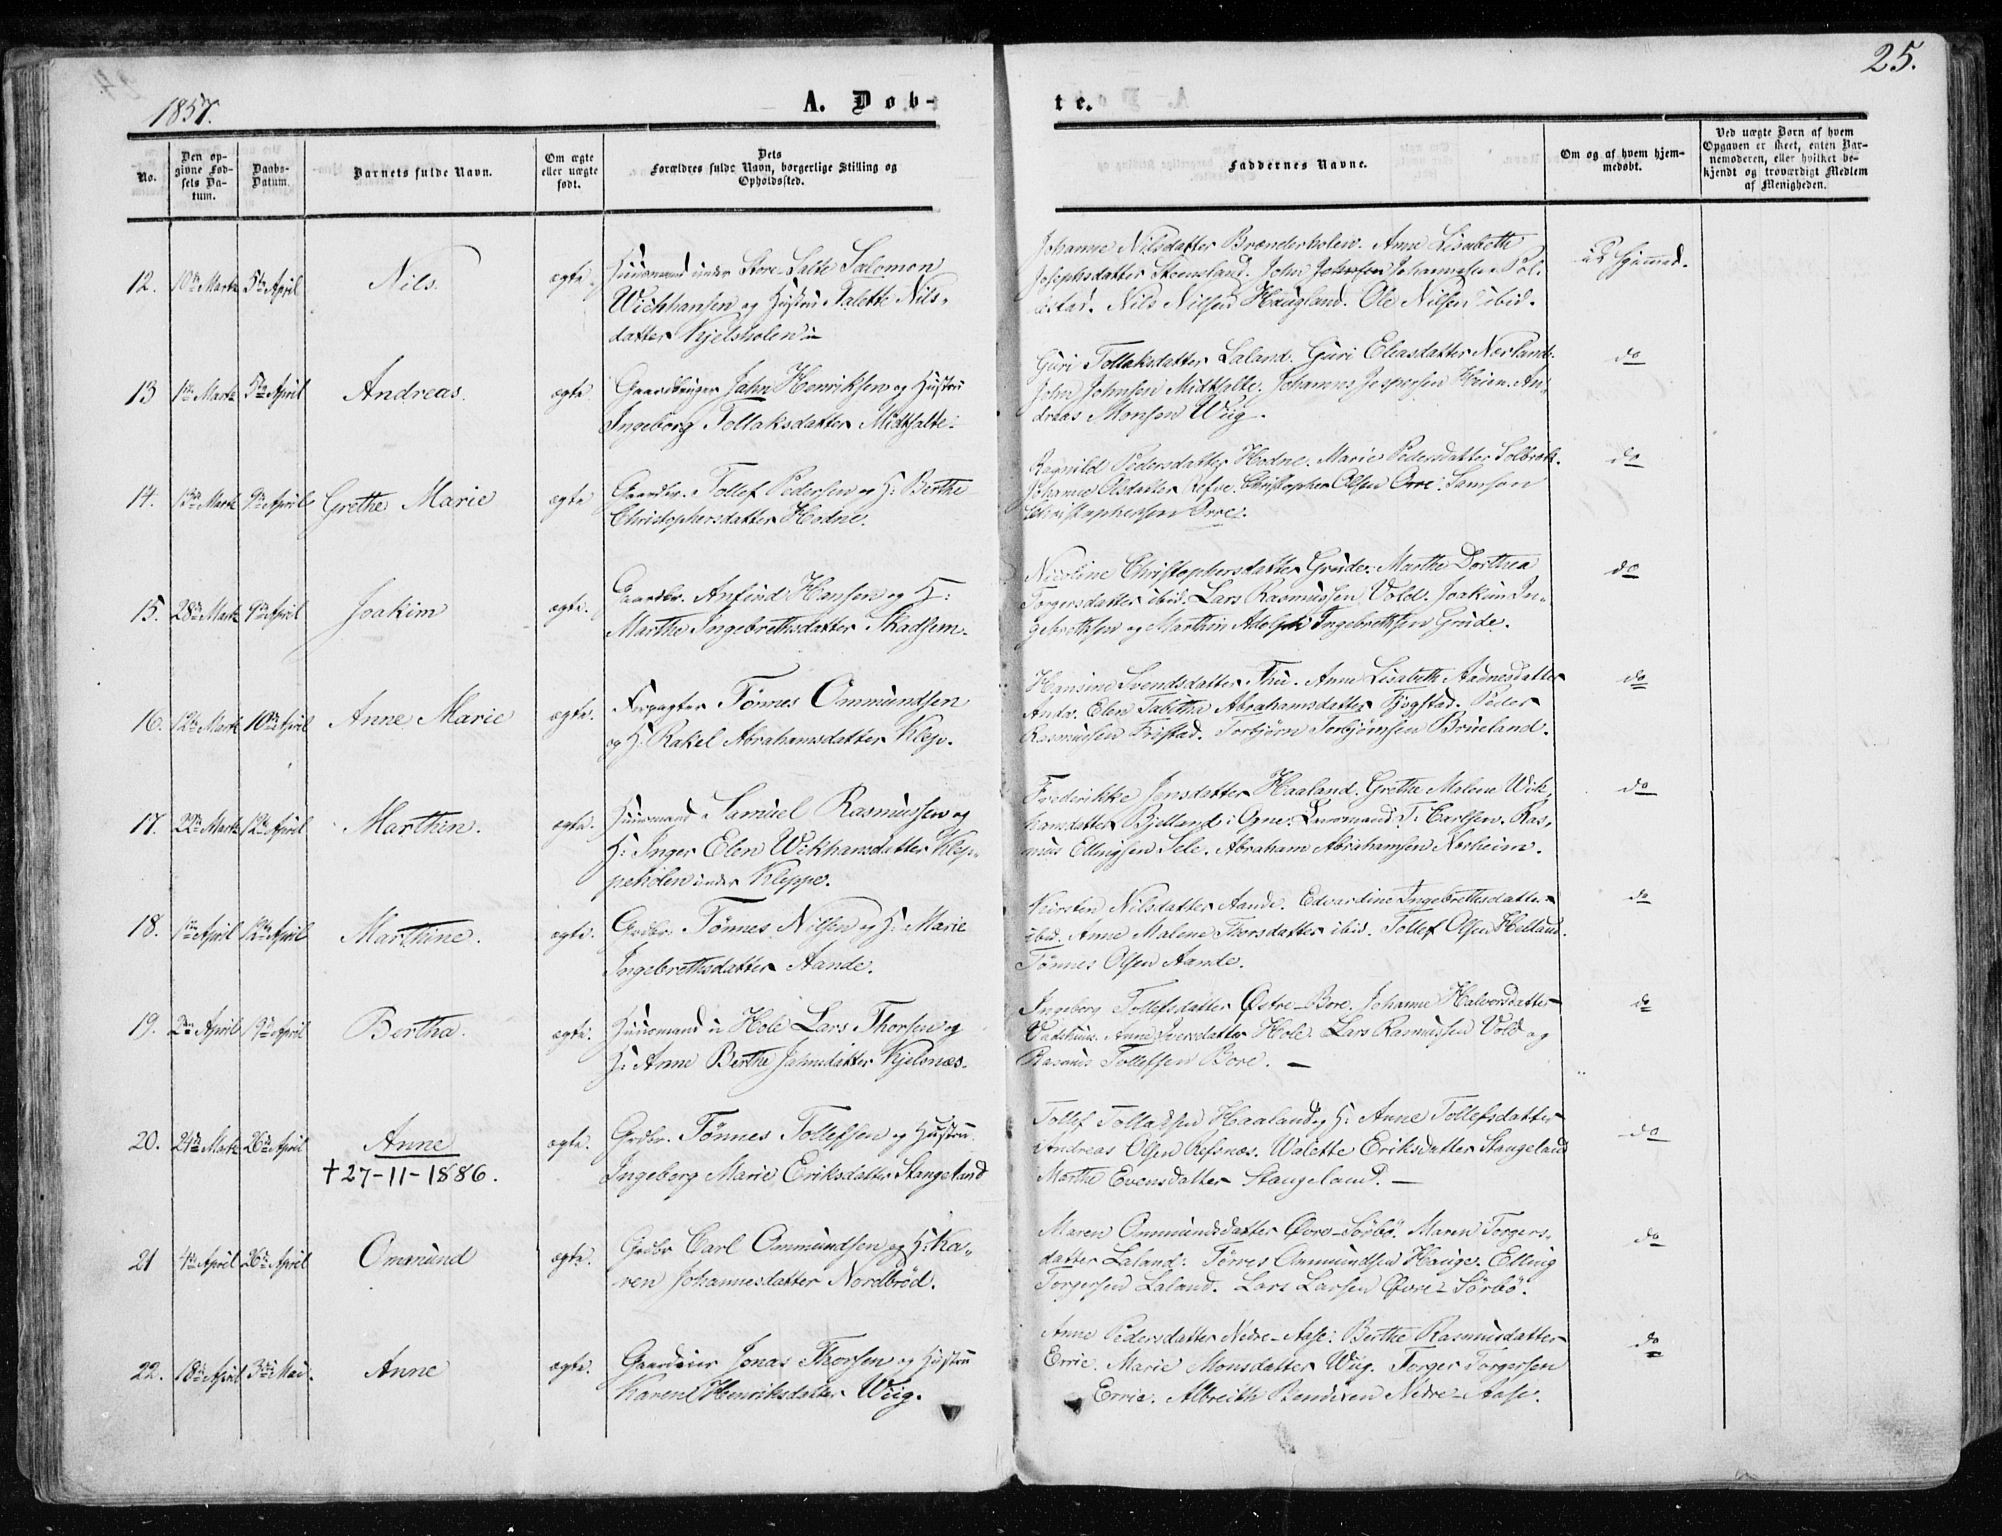 1857.
A. Døb-
te.
25.
No.
Den op-
givne Fød-
sels Da-
tum.
Daabs-
Datum.
Barnets fulde Navn.
Om ægte
eller uægte
født.
Dets
Forældres fulde Navn, borgerlige Stilling og
Opholdssted.
Faddernes Navne.
Om og af hvem hjem-
medøbt.
Ved uægte Børn af hvem
Opgaven er skeet, enten Bar-
nemoderen, eller hvilket be-
kjendt og troværdigt Medlem
af Menigheden.
12. 10de Marts 5te April Nils. ægte.
Huusmand under Store-Salte Salomon
Wichhansen og Hustru Valette Nils-
datter Kjelsholen
Johanne Nilsdatter Brænderholen. Anne Lisabethe
Josephsdatter Stensland. John Johnsen Johannesen Pol-
lestad. Nils Nilsen Haugland. Ole Nilsen ibid.
ei hjemmed.
13 1ste Marts 5te April Andreas. ægte
Gaardbruger Jahn Henriksen og Hustru
Ingeborg Tollaksdatter Midtsalte.
Guri Tollaksdatter Laland. Guri Eliasdatter Nærland.
John Johnsen Midtsalte. Johannes Jespersen Hoien. An-
dreas Monsen Wiig.
do
14. 13de Marts 9de April Grethe Marie ægte
Gaardbr. Tollef Pedersen og H: Berthe
Christophersdatter Hodne.
Ragnild Pedersdatter Hodne. Marie Pedersdatter Solbrek.
Johanne Olsdatter Refve. Christopher Olsen Orre. Samson
Christophersen Orre.
do
15. 28de Marts 9de April Joakim ægte.
Gaardbr. Anfind Hansen og H:
Marthe Ingebrethsdatter Skadsem.
Nicoline Christophersdatter Grude. Marthe Dorthea
Torgersdatter ibid. Lars Rasmussen Vold. Joakim In-
gebrethsen og Marthin Adolph Ingebrethsen Grude.
do
16. 12te Marts 10de April Anne Marie ægte.
Forpagter Tønnes Ommundsen
og H: Rakel Abrahamsdatter Klep.
Hansine Svendsdatter Thu. Anne Lisabeth Aadnesdatter
Anda. Elen Tabitha Abrahamsdatter Fjogstad. Peder
Rasmussen Fristad. Torbjørn Torbjørnsen Brueland.
do
17. 22de Marts 12te April Marthin. ægte.
Huusmand Samuel Rasmussen og
H: Inger Elen Wikhansdatter Klep-
peholen under Kleppe.
Frederikke Jensdatter Haaland. Grethe Malene Wik-
hansdatter Bjelland i Ogne. Lensmand T. Carlsen. Ras-
mus Ellingsen Sele. Abraham Abrahamsen Norheim.
do
18. 1ste April 12te April Marthine. ægte.
Grdbr. Tønnes Nilsen og H: Marie
Ingebrethsdatter Aande.
Kirsten Nilsdatter Aande. Edvardine Ingebrethsdatter
ibid. Anne Malene Thorsdatter ibid. Tollef Olsen Helland.
Tønnes Olsen Aande.
do
19. 2den April 19de April Bertha. ægte.
Huusmand u. Hole Lars Thorsen og
H: Anne Berthe Jahnsdatter Kjelsnæs.
Ingeborg Tollefsdatter Østre-Bore. Johanne Halvorsdatter
Anne Iversdatter Hole. Lars Rasmussen Vold og
Rasmus Tollefsen Bore. —
do
20. 24de Marts 26de April Anne ægte.
+ 27-11-1886.
Grdbr. Tønnes Tollefsen og Hustru
Ingeborg Marie Eriksdatter Stangeland
Tollef Tollaksen Haaland og H: Anne Tollefsdatter
Andreas Olsen Refsnæs. Valette Eriksdatter Stangeland
Marthe Evensdatter Stangeland. —
do
21 4de April 26de April Ommund ægte.
Grdbr Carl Ommundsen og H: Ka-
ren Johannesdatter Nordbrød.
Maren Ommundsdatter Øvre-Sørbø. Maren Torgers-
datter Laland. Tørres Ommundsen Hauge. Elling
Torgersen Laland. Lars Larsen Øvre-Sørbø.
do
22. 18de April 3die Mai. Anne ægte.
Gaardeier Jonas Thorsen og Hustru
Karen Henriksdatter Wiig.
Anne Pedersdatter Nedre-Aase. Berthe Rasmusdatter
Errie. Marie Monsdatter Wiig. Torger Torgersen
Errie. Albreith Bendixen Nedre-Aase.
do